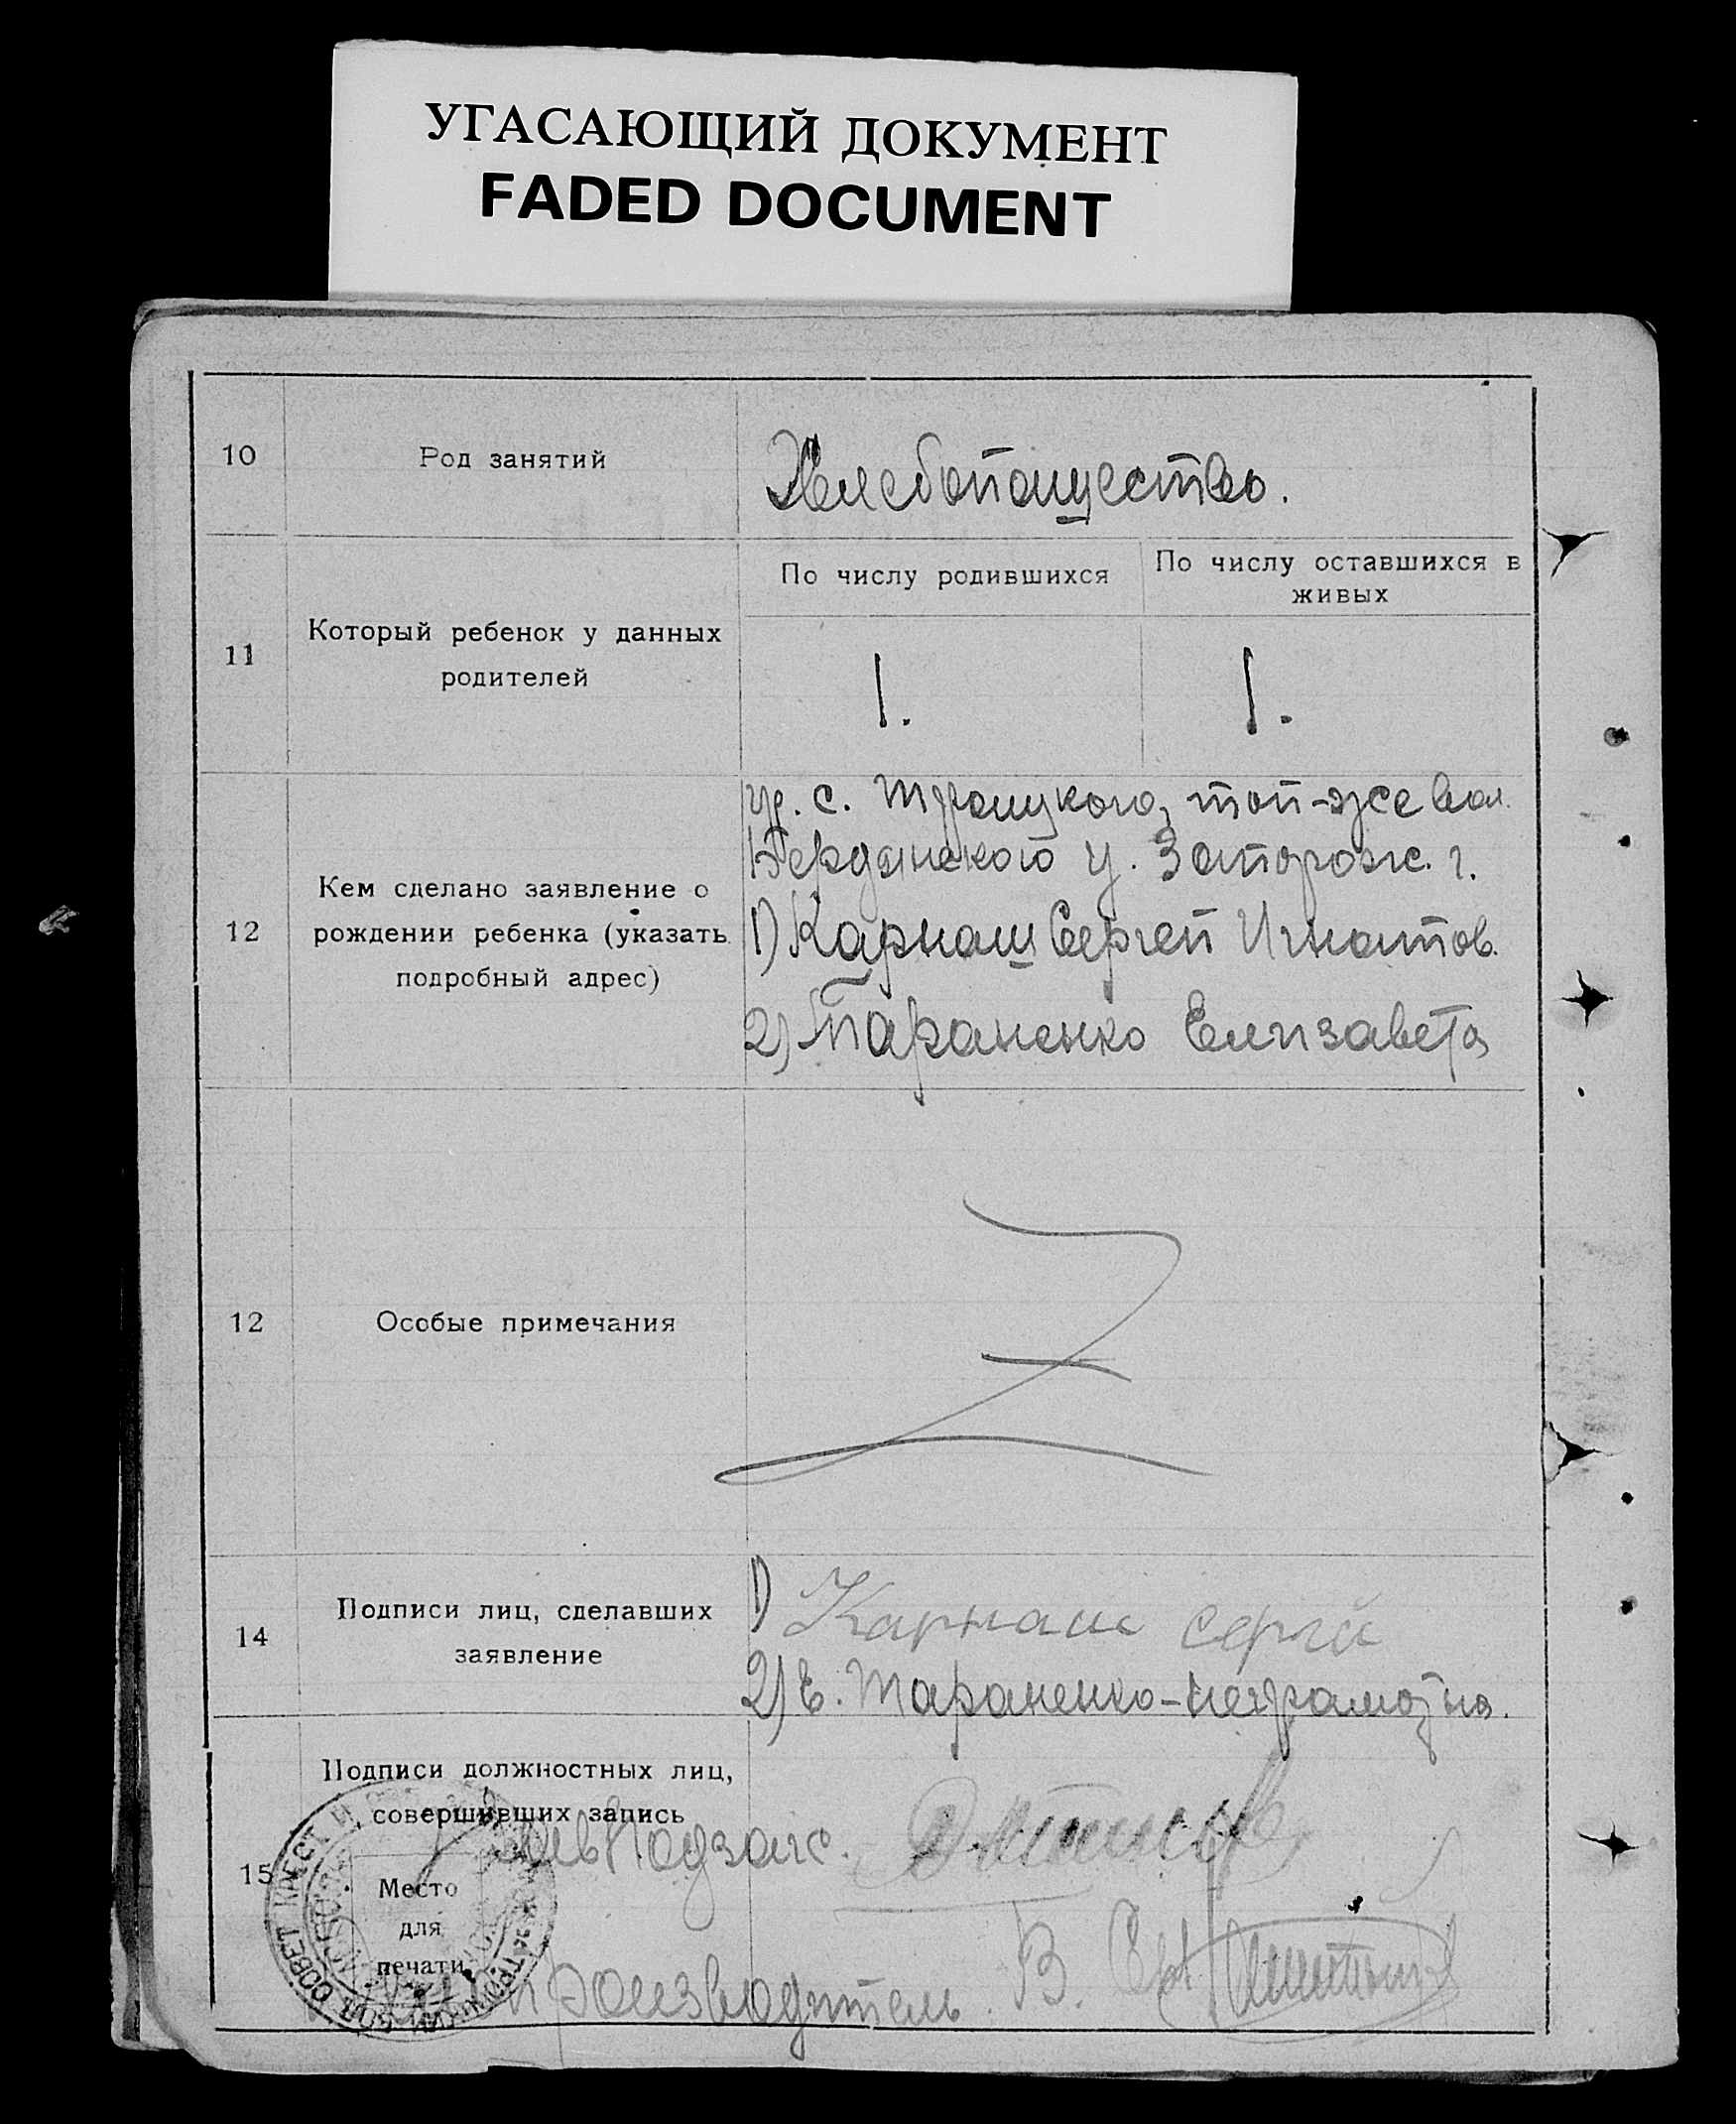 УГАСАЮЩИЙ ДОКУМЕНТ
FADED DOCUMENT
10
Род занятий
Хлебопашество.
11
Который ребенок у данных
родителей
По числу родившихся
По числу оставшихся в
живых
1.
1.
12
Кем сделано заявление о
рождении ребенка (указать
подробный адрес)
гр. с. Троицкого, той-же вол.
Бердянского у. Запорож. г.
1) Карнаш Сергей Игнатов.
2) Тараненко Елизавета
12
Особые примечания
14
Подписи лиц, сделавших
заявление
1) Карнаш Сергй
2) Е. Тараненко-неграмотна.
15
Подписи должностных лиц,
совершивших запись
Место
для
печати
Зав Подзагс.
производитель. В.